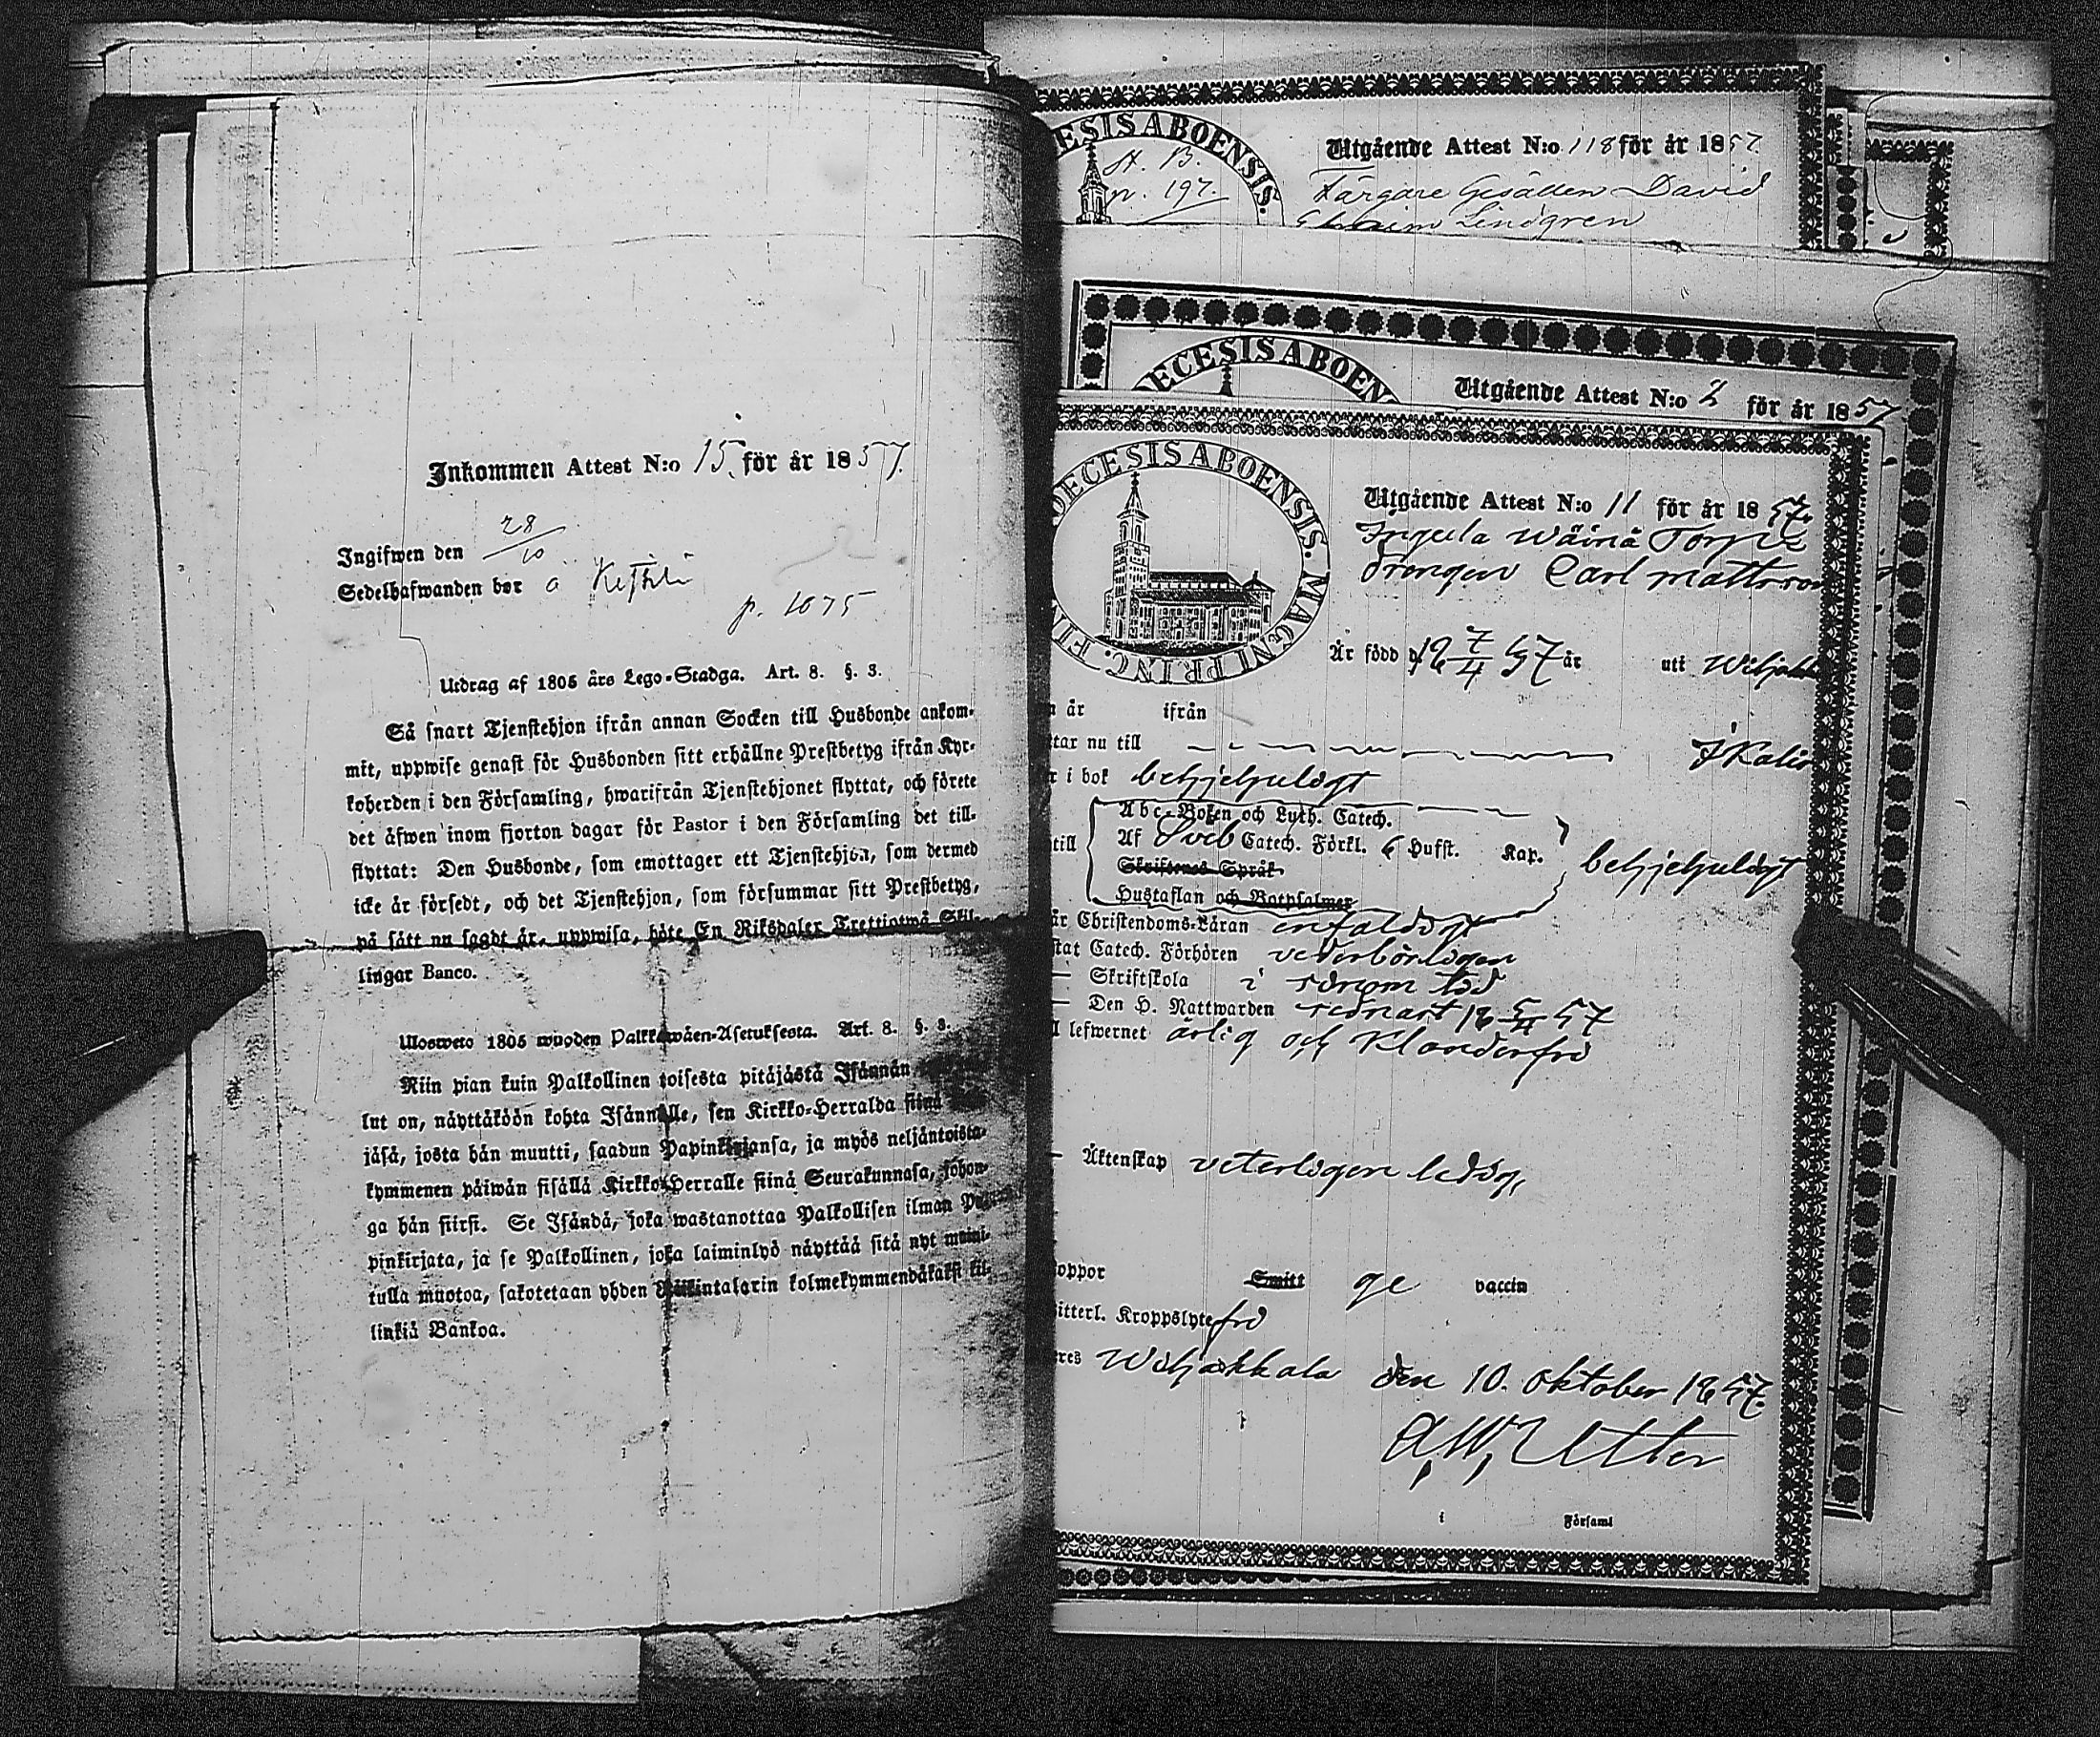 Inkommen Attest N:o 15. för år 1857.
Ingifwen den 28/10
Sedelhafwanden bor å
p. 1075
Utdrag af 1805 års Lego-Stadga. Art. 8. §. 3.
Så snart Tjenstehjon ifrån annan Socken till Husbonde ankom-
mit, uppwise genast för Husbonden sitt erhållne Prestbetyg ifrån Kyr-
koherden i den Församling, hwarifrån Tjenstehjonet flyttat, och förete
det äfwen inom fjorton dagar för Pastor i den Församling det till-
flyttat: Den Husbonde, som emottager ett Tjenstehjon, som dermed
icke är försedt, och det Tjenstehjon, som försummar sitt Prestbetyg,
på sätt nu sagdt är, uppwisa, böte En Riksdaler Trettiotwå Skil-
lingar Banco.
Ulosweto 1805 wuoden Palkkawäen-Asetuksesta. Art. 8. §. 3.
Niin pian kuin Palkollinen toisesta pitäjästä Isännän
lut on, näyttäköön kohta Isännälle, sen Kirkko-Herralda siinä
jäsä, josta hän muutti, saadun Papinkirjansa, ja myös neljäntoista-
kymmenen päiwän sisällä Kirkko-Herralle siinä Seurakunnasa, johon-
ga hän siirst. Se Isändä, joka wastanottaa Palkollisen ilman Pa-
pinkirjata, ja se Palkollinen, joka laiminlyö näyttää sitä nyt maini-
tulla muotoa, sakotetaan yhden Riikintalarin kolmekymmendäkaksi kil-
linkiä Bankoa.
ECESIS ABOENSIS.
p. 197.
Utgående Attest N:o 118 för år 1857.
Färgare Gesällen David
Lindgren
DECESIS ABOEN
Utgående Attest N:o 2 för år 1857
DECESIS ABOENSIS. MAGNI PRINC. FIN
Utgående Attest N:o 11 för år 1857.
Ingula Wäinä Torpe
Drengen Carl Mattsson
Är född 18 7/4 37 år uti
n år ifrån
tar nu till Ikalis
r i bok behjelpeligt
Abc-Boken och Luth. Catech.
till Af Sveb Catech. Förkl. 6 Hufst. Kap. behjelpeligt
Skriftenes Språk
Hustaflan och Botpsalmer
är Christendoms-Läran enfaldigt
stat Catech. Förhören vederbörligen
— Skriftskola i sinom tid
— Den H. Nattwarden senast 18 5/4 57
l lefwernet ärlig och klanderfri
— Äktenskap veterligen ledig,
oppor Smitt ge vaccin
itterl. Kroppslyte fri
res Wiljakkala den 10. oktober 1857.
A. W. Utter
i Församl